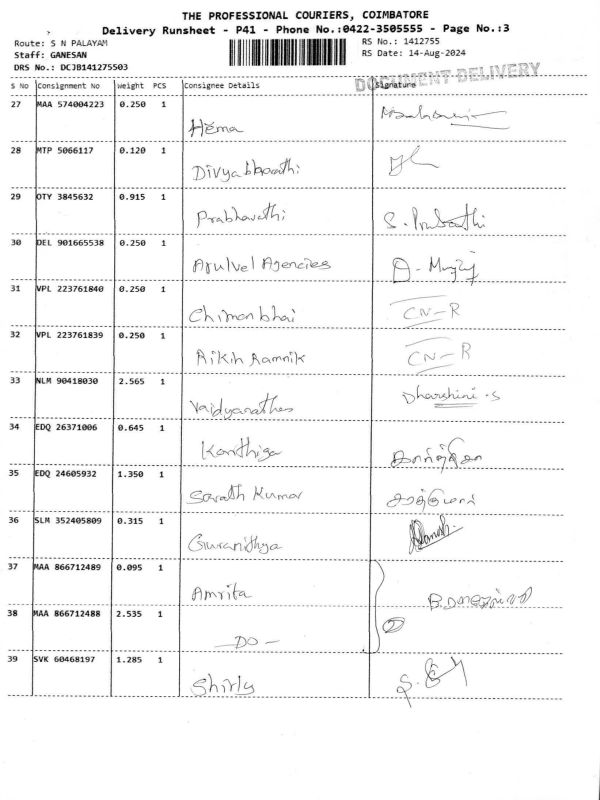 THE PROFESSIONAL COURIERS, COIMBATORE
Delivery Runsheet - P41 - Phone No.:0422-3505555 - Page No.:3
Route: S N PALAYAM RS No.: 1412755
Staff: GANESAN RS Date: 14-Aug-2024
DRS No.: DCJB141275503
DOCUMENT DELIVERY
S No Consignment No Weight PCS Consignee Details Signature
27 MAA 574004223 0.250 1
Hema
28 MTP 5066117 0.120 1
Divyabharathi
29 OTY 3845632 0.915 1
Prabhavathi S. Prabathi
30 DEL 901665538 0.250 1
Arulvel Agencies
31 VPL 223761840 0.250 1
Chimanbhai CN-R
32 VPL 223761839 0.250 1
Rikin Ramnik CN-R
33 NLM 90418030 2.565 1
Vaidyanathan Dharshini.S
34 EDQ 26371006 0.645 1
Karthiga கார்த்திகா
35 EDQ 24605932 1.350 1
Sarath Kumar
36 SLM 352405809 0.315 1
Guranithya
37 MAA 866712489 0.095 1
Amrita
38 MAA 866712488 2.535 1
-DO- 2
39 SVK 60468197 1.285 1
Shirly